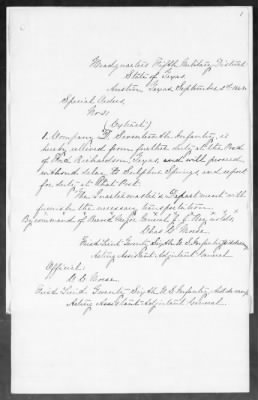 1
Headquarters Fifth Military District
State of Texas
Austin Texas September 1868
Special Orders
No 31
(Extract)
1. Company Seventeenth Infantry is
hereby relieved from further duty at the Post
of Richardson, Texas, and will proceed
without delay to Sulphur Springs and report
for duty at that Post.
The Quartermaster's Department will
furnish the necessary transportation.
By command of Brevet Major General J. J. Reynolds,
Chas. E. Morse
First Lieut Twenty Sixth U. S. Infantry
Acting Assistant Adjutant General
Official:
Morse
First Lieut. Twenty Sixth U S Infantry A. d. camp
Acting Assistant Adjutant General